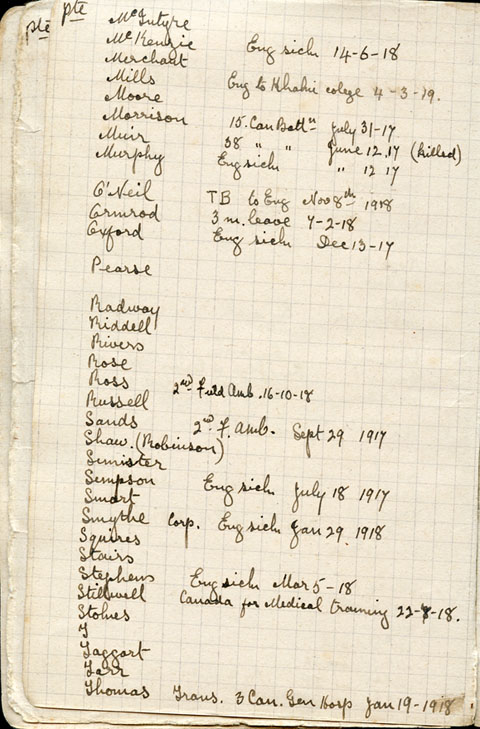 pte pte McIntyre
McKenzie Eng sick 14-6-18
Merchant
Mills Eng to Khaki colege 4-3-19.
Moore
Morrison 15. Can Battn July 31-17
Muir 58 " " June 12.17 (killed)
Murphy Eng sick " 12 17
O'Neil TB to Eng Nov 8th 1918
Ormrod 3 m. leave 7-2-18
Oxford Eng sick Dec 13-17
Pearse
Radway
Riddell
Rivers
Rose
Ross 2nd Field Amb. 16-10-18
Russell
Sands 2nd F. Amb. Sept 29 1917
Shaw. (Robinson)
Simister
Simpson Eng sick July 18 1917
Smart
Smythe Corp. Eng sick Jan 29. 1918
Squires
Stairs
Stephens Eng sick Mar 5-18
Stillwell Canada for Medical training 22-8-18.
Stokes
T
Taggart
Tarr
Thomas Trans. 3 Can. Gen Hosp Jan 19-1918